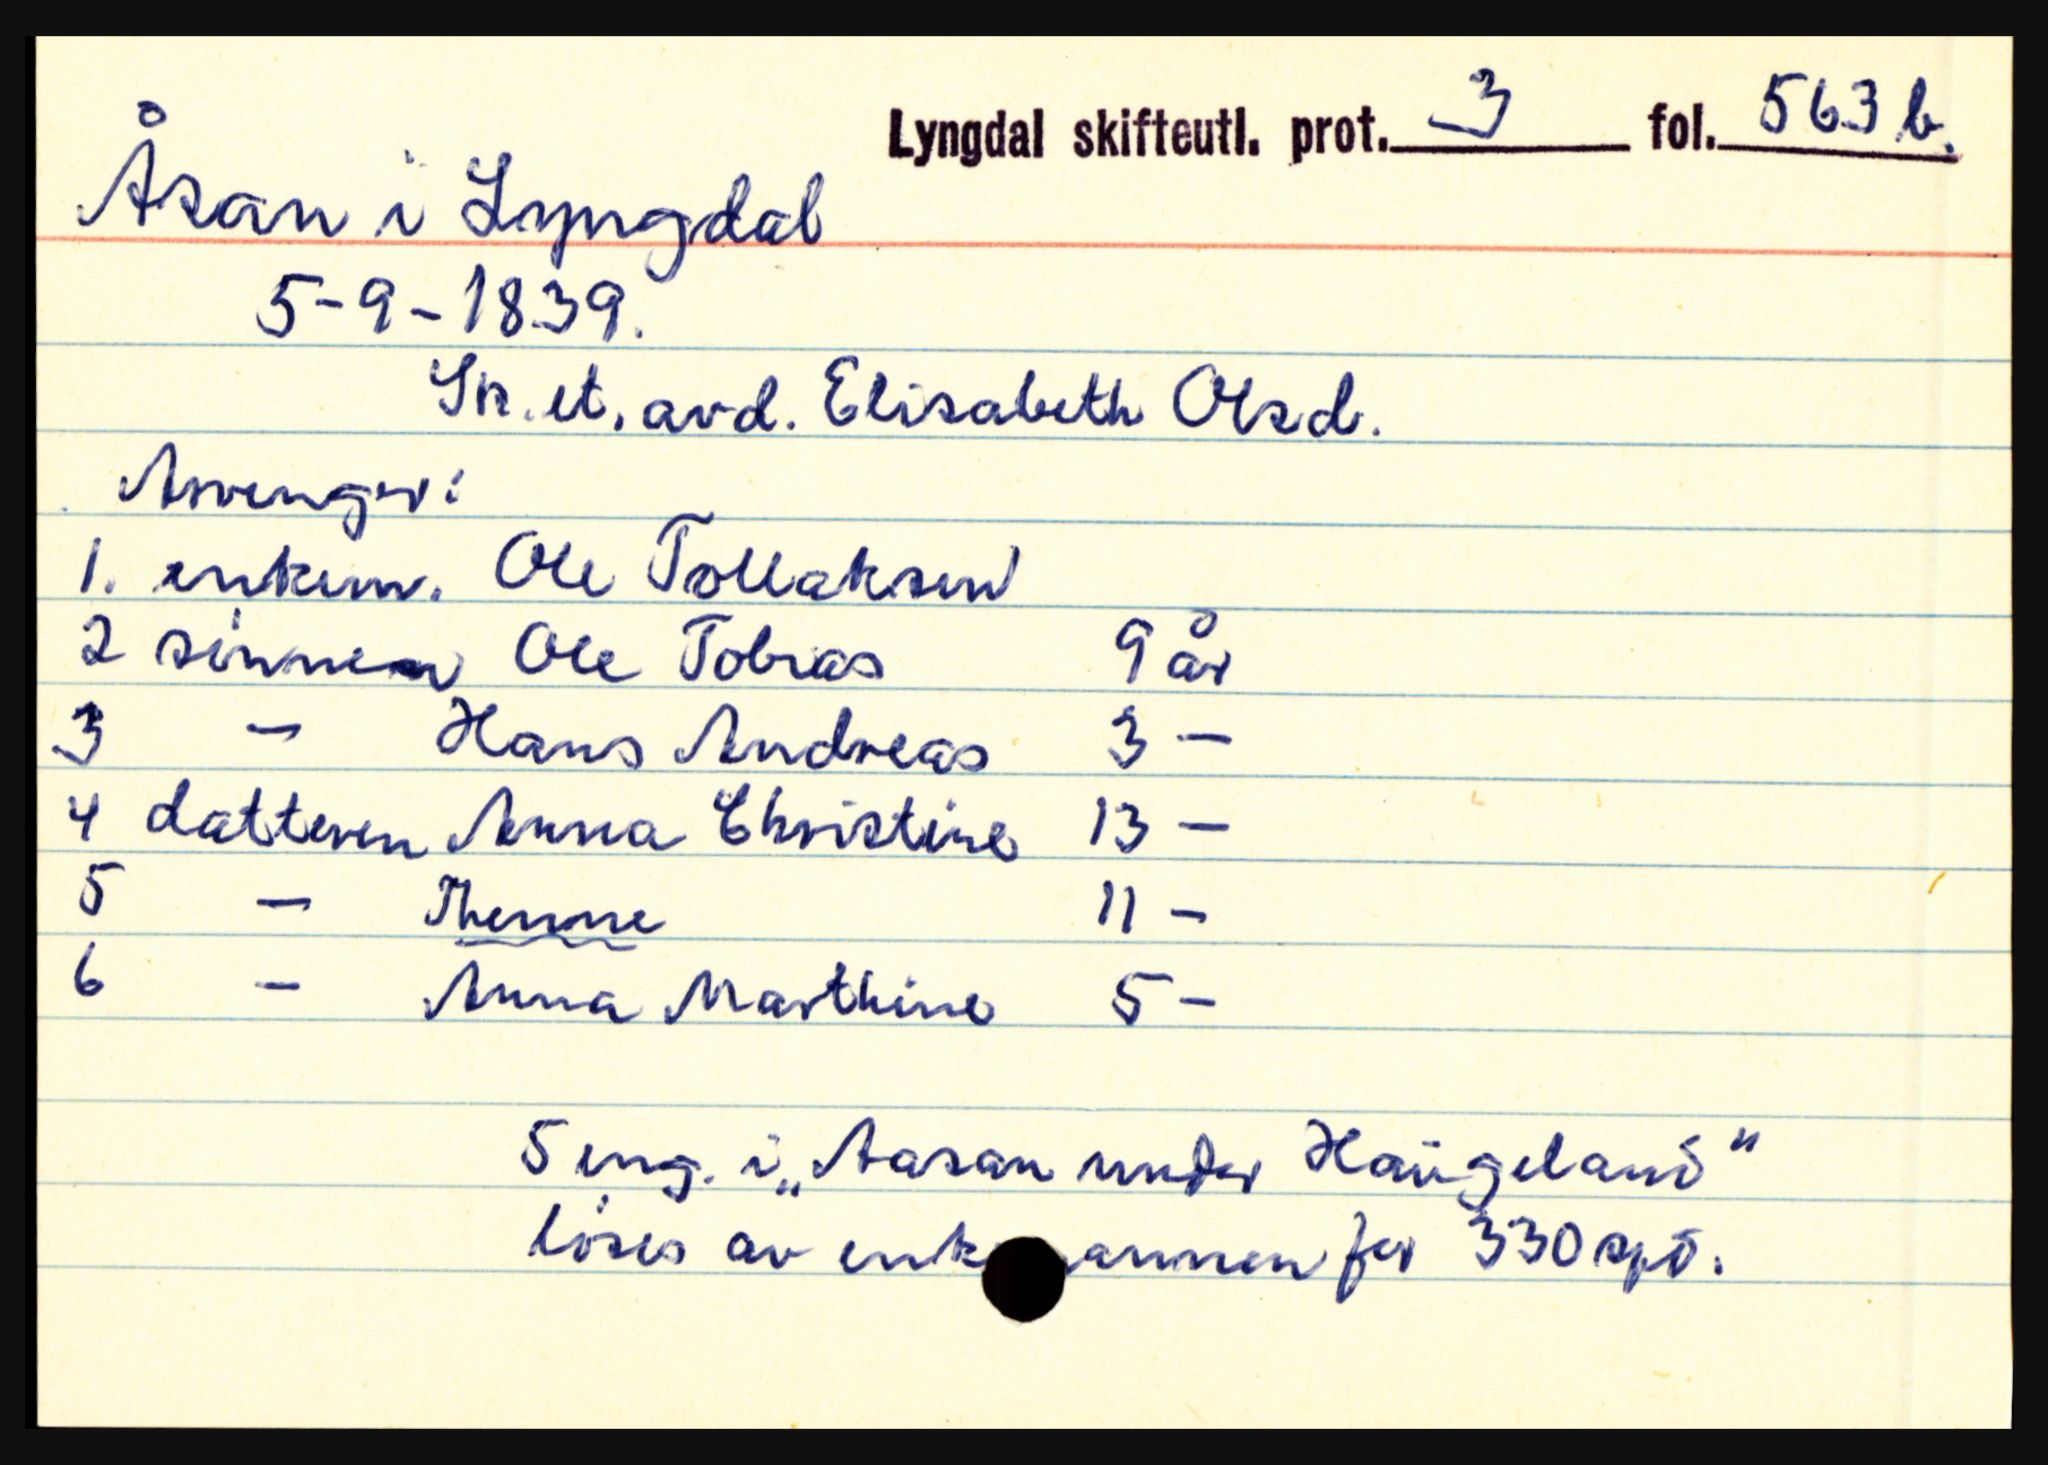 Lyngdal skifteutl. prot. 3 fol. 563 b.
Åsan i Lyngdal
5-9-1839.
Sk. et. avd. Elisabeth Olsd.
Arvenger:
1. enkem. Ole Tollaksen
2 sönnen Ole Tobias 9 år
3 - Hans Andreas 3 -
4 datteren Anna Christine 13 -
5 - Thenne 11 -
6 - Anna Marthine 5 -
5 eng. i „Aasan under Haugeland"
löses av enkemannen for 330 spd.